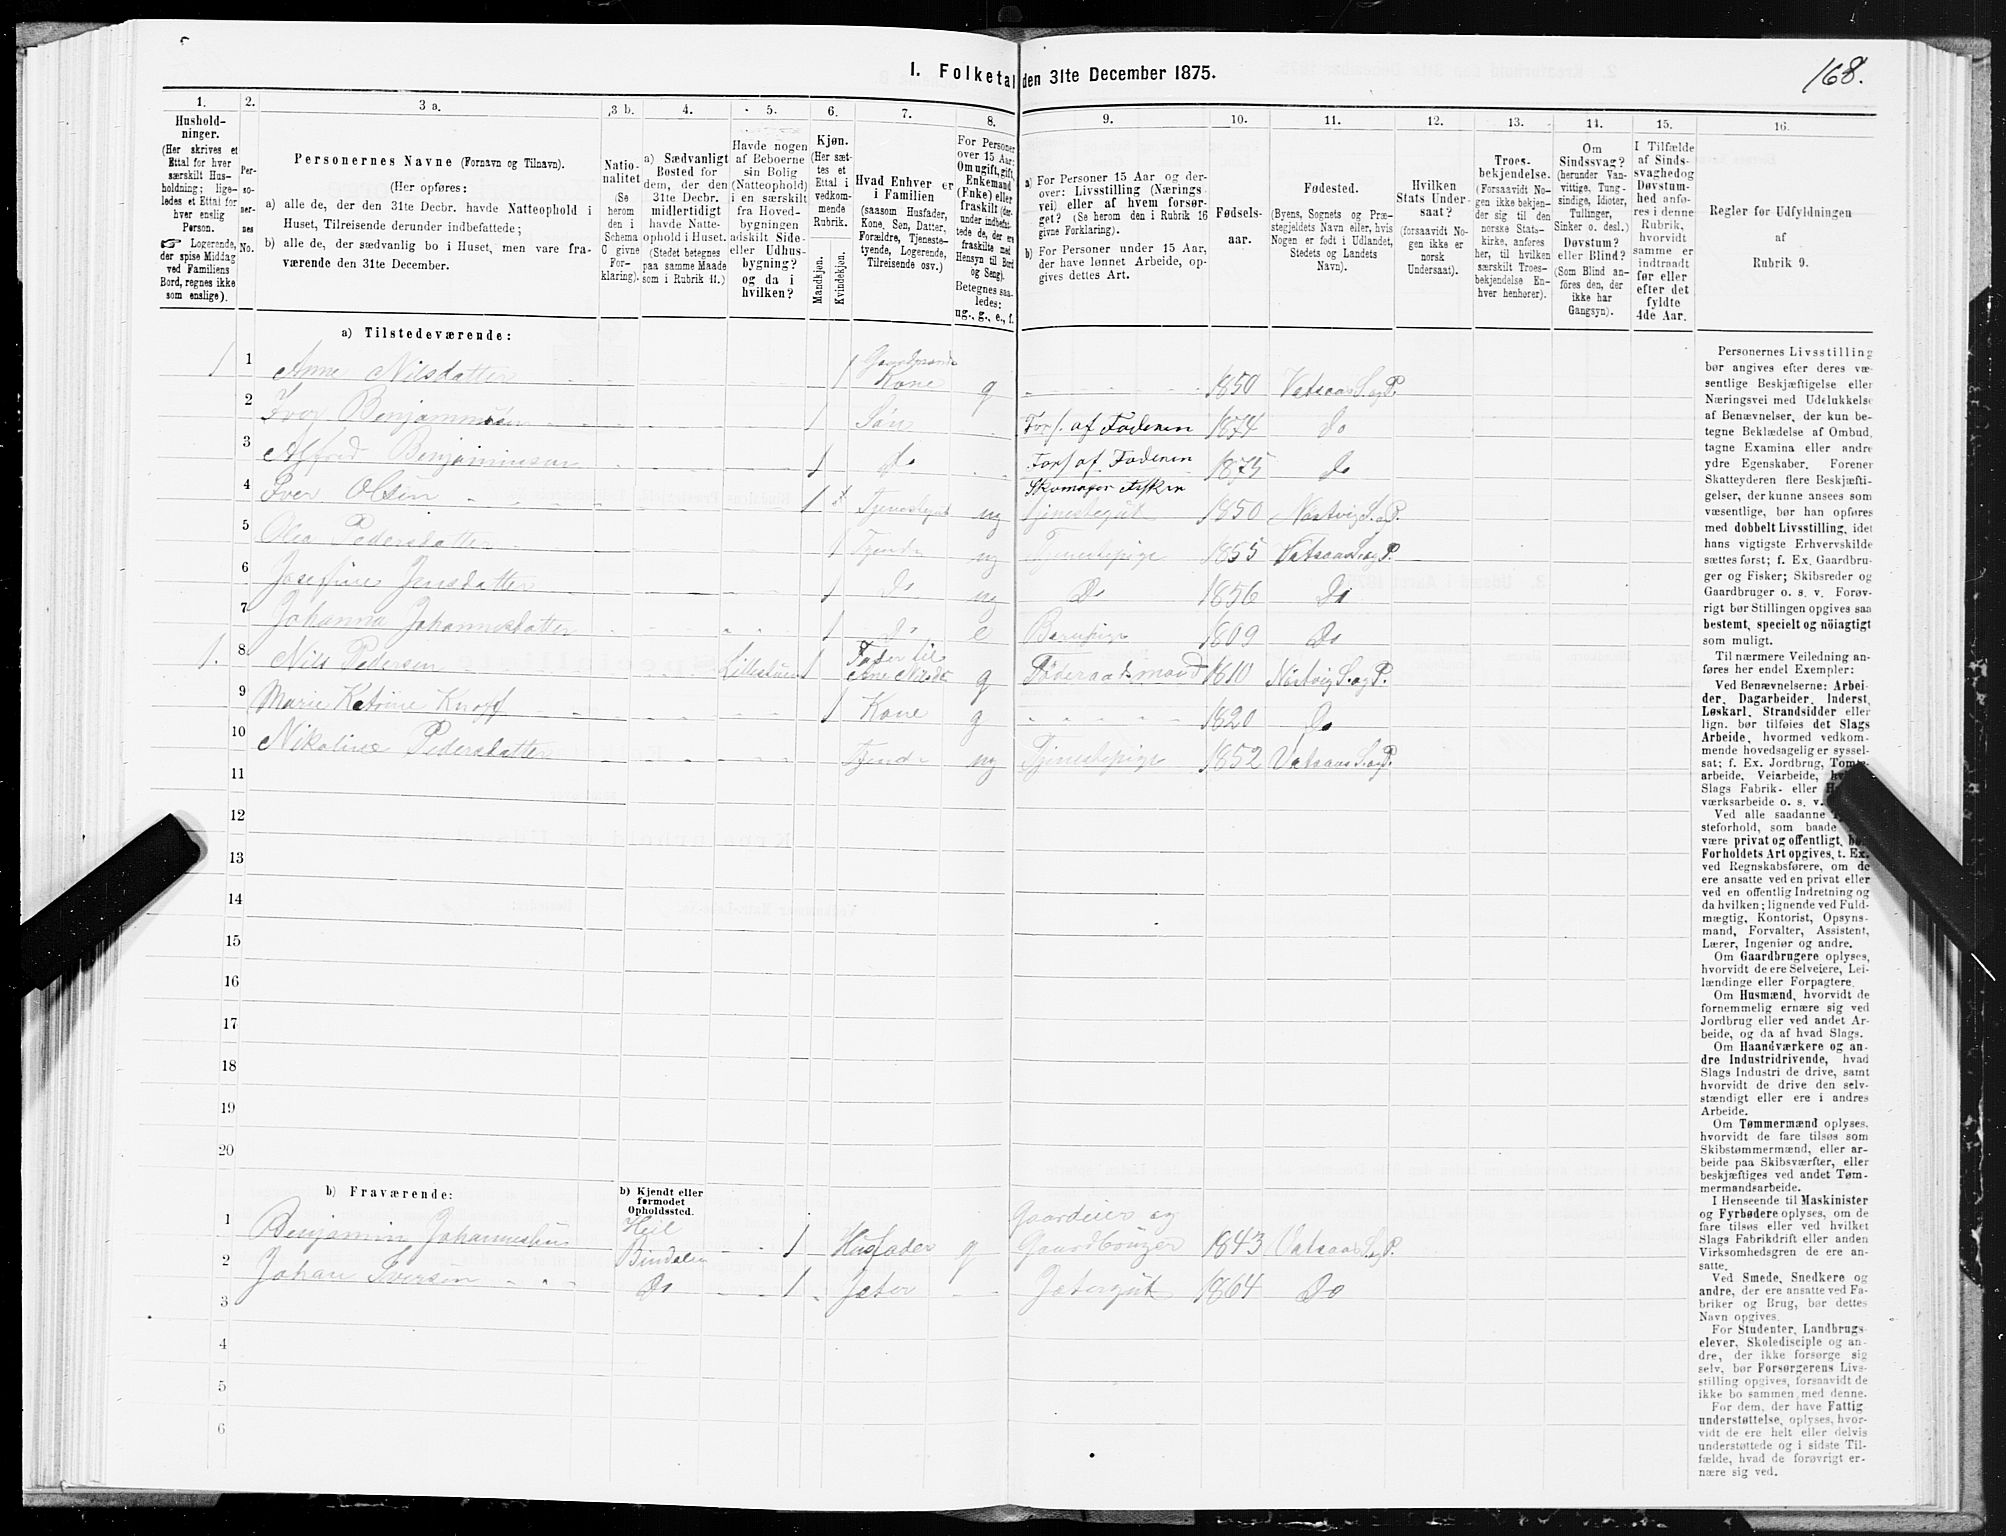 I. Folketal den 31te December 1875.
168.
1. 2. 3 a. 3 b. 4. 5. 6. 7. 8. 9. 10. 11. 12. 13. 14. 15. 16.
Husholdninger.
(Her skrives et
Ettal for hver
særskilt Hus-
holdning; lige-
ledes et Ettal for
hver enslig
Person.
☞ Logerende,
der spise Middag
ved Familiens
Bord, regnes ikke
som enslige).
Per-
so-
ner-
nes
No.
Personernes Navne (Fornavn og Tilnavn).
(Her opføres:
a) alle de, der den 31te Decbr. havde Natteophold i
Huset, Tilreisende derunder indbefattede;
b) alle de, der sædvanlig bo i Huset, men vare fra-
værende den 31te December.
Natio-
nalitet
(Se
herom
den i
Schema
O givne
For-
klaring).
a) Sædvanligt
Bosted for
dem, der den
31te Decbr.
midlertidigt
havde Natte-
ophold i Huset.
(Stedet betegnes
paa samme Maade
som i Rubrik 11.)
Havde nogen
af Beboerne
sin Bolig
(Natteophold)
i en særskilt
fra Hoved-
bygningen
adskilt Side-
eller Udhus-
bygning?
og da i
hvilken?
Kjøn.
(Her sæt-
tes et
Ettal i
vedkom-
mende
Rubrik.
Mandkjøn.
Kvindekjøn.
Hvad Enhver er
i Familien
(saasom Husfader,
Kone, Søn, Datter,
Forældre, Tjeneste-
tyende, Logerende,
Tilreisende osv.)
For Personer
over 15 Aar:
Om ugift, gift,
Enkemand
(Enke) eller
fraskilt (der-
under indbefat-
tede de, der ere
fraskilte med
Hensyn til Bord
og Seng).
Betegnes saa-
ledes:
ug., g., e., f.
a) For Personer 15 Aar og der-
over: Livsstilling (Nærings-
vei) eller af hvem forsør-
get? (Se herom den i Rubrik 16
givne Forklaring).
b) For Personer under 15 Aar,
der have lønnet Arbeide, op-
gives dettes Art.
Fødsels-
aar.
Fødested.
(Byens, Sognets og Præ-
stegjeldets Navn eller, hvis
Nogen er født i Udlandet,
Stedets og Landets
Navn).
Hvilken
Stats Under-
saat?
(forsaavidt No-
gen ikke er
norsk
Undersaat).
Troes-
bekjendelse.
(Forsaavidt No-
gen ikke bekjen-
der sig til den
norske Stats-
kirke, anføres
her, til hvilken
særskilt Troes-
bekjendelse En-
hver henhører).
Om
Sindssvag?
(herunder Van-
vittige, Tung-
sindige, Idioter,
Tullinger,
Sinker o. desl.)
Døvstum?
eller Blind?
(Som Blind an-
føres den, der
ikke har
Gangsyn).
I Tilfælde
af Sinds-
svaghed og
Døvstum-
hed anfø-
res i denne
Rubrik,
hvorvidt
samme er
indtraadt
før eller
efter det
fyldte
4de Aar.
Regler for Udfyldningen
af
Rubrik 9.
a) Tilstedeværende:
1 1 Anne Nilsdatter 1 Gaardmands Kone g 1850 Vatsaas S. og P.
2 Iver Benjaminsen 1 Søn Fors. af Faderen 1874 Do
3 Alfred Benjaminsen 1 do Fors. af Faderen 1875 Do
4 Iver Olsen 1 Tjenestegut ug Tjenestegut 1850 S. og P.
5 Olea Pedersdatter 1 Tjende ug Tjenestepige 1855 Vatsaas S. og P.
6 Josefine Jensdatter 1 Do ug Do 1856 Do
7 Johanna Johannesdatter 1 Do e 1809 Do
1. 8 Nils Pedersen 1 Fader til Ane Nilsd. g Føderaadsmand 1810 S. og P.
9 Marie Katrine Knoff 1 Kone g 1820 Do
10 Nikoline Pedersdatter Tjende ug Tjenestepige 1852 Vatsaas S. og P.
11
12
13
14
15
16
17
18
19
20
b) Fraværende:
b) Kjendt eller
formodet
Opholdssted.
1 Benjamin Johannessen Heil Bindalen 1 Husfader g Gaardeier og Gaardbruger 1843 Vatsaas S. og P.
2 Johan Iversen Do 1 Jæter Jætergut 1864 Do
3
4
5
6
Personernes Livsstilling
bør angives efter deres væ-
sentlige Beskjæftigelse eller
Næringsvei med Udelukkelse
af Benævnelser, der kun be-
tegne Beklædelse af Ombud,
tagne Examina eller andre
ydre Egenskaber. Forener
Skatteyderen flere Beskjæfti-
gelser, der kunne ansees som
væsentlige, bør han opføres
med dobbelt Livsstilling, idet
hans vigtigste Erhvervskilde
sættes først; f. Ex. Gaardbru-
ger og Fisker; Skibsreder og
Gaardbruger o. s. v. Forøv-
rigt bør Stillingen opgives saa
bestemt, specielt og nøiagtigt
som muligt.
Til nærmere Veiledning an-
føres her endel Exempler:
Ved Benævnelserne: Arbei-
der, Dagarbeider, Inderst,
Løskarl, Strandsidder eller
lign. bør tilføies det Slags
Arbeide, hvormed vedkom-
mende hovedsagelig er syssel-
sat; f. Ex. Jordbrug, Tomt-
arbeide, Veiarbeide,
Slags Fabrik- eller
værksarbeide o. s. v.
Ved alle saadanne
steforhold, som baade
være privat og offentligt, bør
Forholdets Art opgives, t. Ex.
ved Regnskabsførere, om de
ere ansatte ved en privat eller
ved en offentlig Indretning og
da hvilken; lignende ved Fuld-
mægtig, Kontorist, Opsyns-
mand, Forvalter, Assistent,
Lærer, Ingeniør og andre.
Om Gaardbrugere oplyses,
hvorvidt de ere Selveiere, Lei-
lændinge eller Forpagtere.
Om Husmænd, hvorvidt de
fornemmelig ernære sig ved
Jordbrug eller ved andet Ar-
beide, og da af hvad Slags.
Om Haandværkere og an-
dre Industridrivende, hvad
Slags Industri de drive, samt
hvorvidt de drive den selv-
stændigt eller ere i andres
Arbeide.
Om Tømmermænd oplyses,
hvorvidt de fare tilsøs som
Skibstømmermænd, eller ar-
beide paa Skibsværfter, eller
beskjæftiges ved andet Tøm-
mermandsarbeide.
I Henseende til Maskinister
og Fyrbødere oplyses, om de
fare tilsøs eller ved hvilket
Slags Fabrikdrift eller anden
Virksomhedsgren de ere an-
satte.
Ved Smede, Snedkere og
andre, der ere ansatte ved Fa-
briker og Brug, bør dettes
Navn opgives.
For Studenter, Landbrugs-
elever, Skoledisciple og an-
dre, der ikke forsørge sig
selv, bør Forsørgerens Livs-
stilling opgives, forsaavidt de
ikke bo sammen med denne.
For dem, der have Fattig-
understøttelse, oplyses, hvor-
vidt de ere helt eller delvis
understøttede og i sidste Til-
fælde, hvad de forøvrigt er-
nære sig ved.